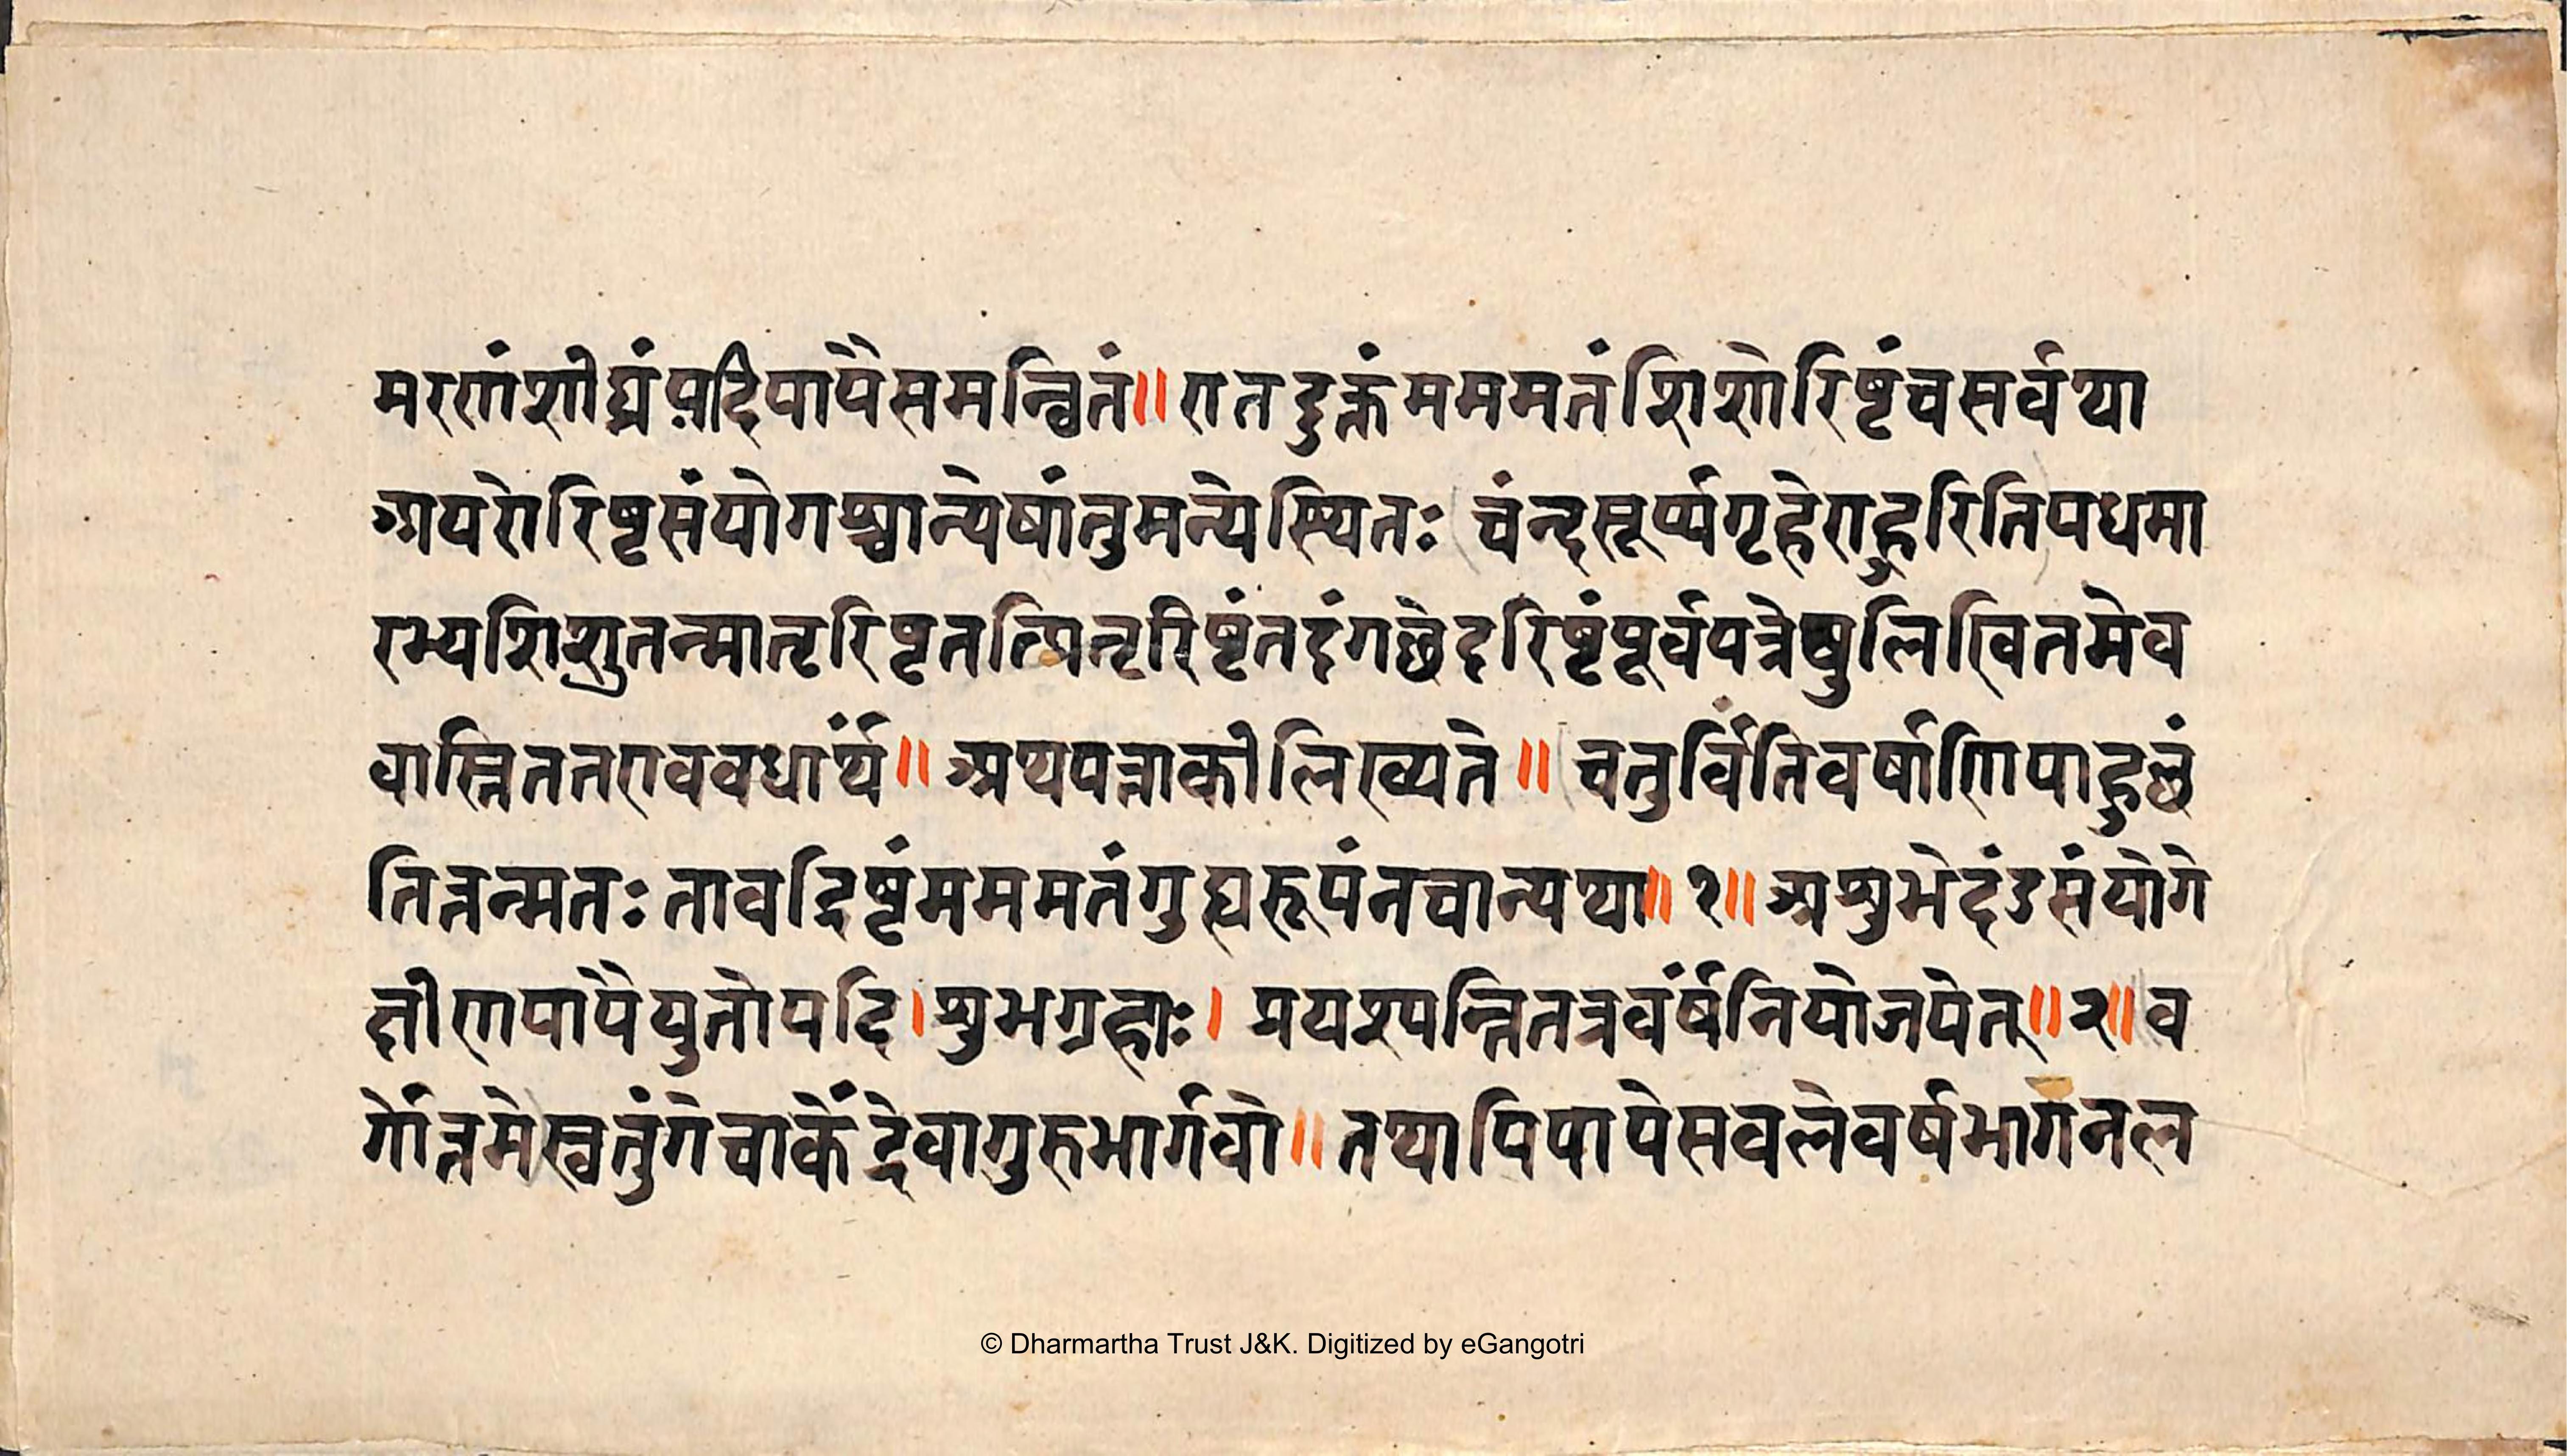 मरणंशीघ्रंप़दिपापैसमन्वितं॥एतदुक्तंमममतंशिशोरिष्टंचसर्वथा
अपरोरिष्टसंयोगश्चान्येषांतुमन्येस्थितः चंन्द्रसूर्य्यगृहेराहुरितिपधमा
रभ्यशिशुतन्मातृरिष्टतत्पितृरिष्टंतदंगछेदरिष्टंपूर्वपत्रेषुलिखितमेव
वास्तिततएववधार्यं॥अथपत्ताकीलिख्यते॥चतुर्विंतिवर्षाणिपाहुछं
तिन्नन्मतः तावद्रिष्टंमममतंगुह्यरूपंनचान्यथा॥१॥अशुभेदंडसंयोगे
क्षीणपापैयुतोपदि।शुभग्रहाः। प्रयश्पन्तितत्रवर्षंनियोजयेत्॥२॥व
र्गोत्तमेस्वतुंगेचार्केंद्रेवागुरुभार्गवो॥तथापिपापेसवलेवर्षभागेनल
© Dharmartha Trust J&K. Digitized by eGangotri